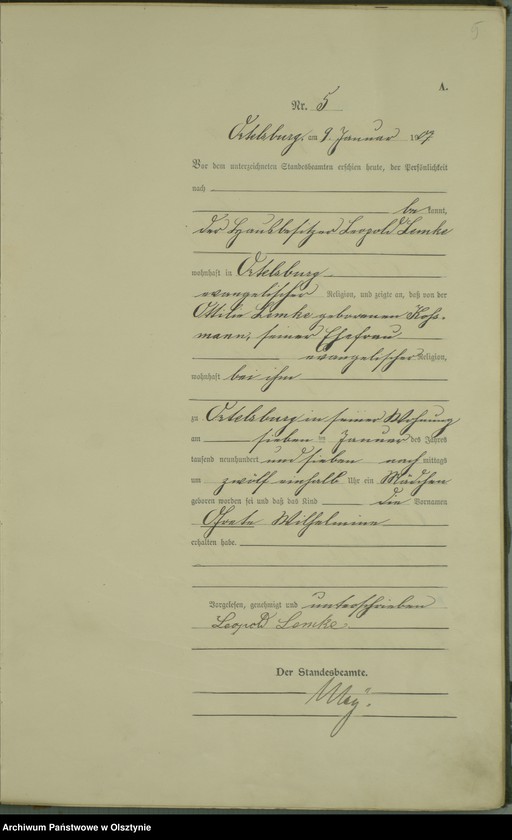 5
A.
Nr. 5
Ortelsburg, am 9. Januar 1907
Vor dem unterzeichneten Standesbeamten erschien heute, der Persönlichkeit
nach
be kannt,
der Hausbesitzer Leopold Lemke
wohnhaft in Ortelsburg
evangelischer Religion, und zeigte an, daß von der
Ottilie Lemke geborenen Koß-
mann, seiner Ehefrau
evangelischer Religion,
wohnhaft bei ihm
zu Ortelsburg in seiner Wohnung
am sieben ten Januar des Jahres
tausend neunhundert und sieben nach mittags
um zwölf einhalb Uhr ein Mädchen
geboren worden sei und daß das Kind die Vornamen
Wilhelmine
erhalten habe.
Vorgelesen, genehmigt und unterschrieben
Leopold Lemke.
Der Standesbeamte.
May.
Archiwum Państwowe w Olsztynie